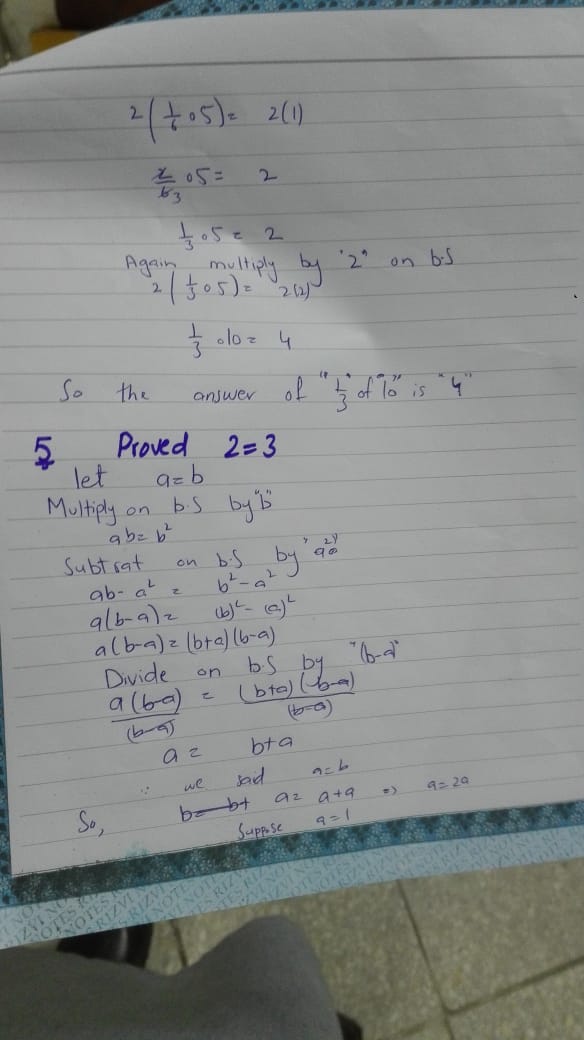 2(1/6 of 5) = 2(1)
2/6 3 of 5 = 2
1/3 of 5 = 2
Again multiply by "2" on b.S
2(1/3 of 5) = 2(2)
1/3 of 10 = 4
So the answer of "1/3" of "10" is "4"
5 Proved 2=3
let a=b
Multiply on b.S by "b"
ab= b²
Subtsat on b.S by "a²"
ab-a² = b²-a²
a(b-a)= (b)²-(a)²
a(b-a)= (b+a)(b-a)
Divide on b.S by "(b-a)"
a(b-a)/(b-a) = (b+a)(b-a)/(b-a)
a = b+a
∵ we said a=b
So, b= b+ a= a+a => a=2a
Suppose a=1